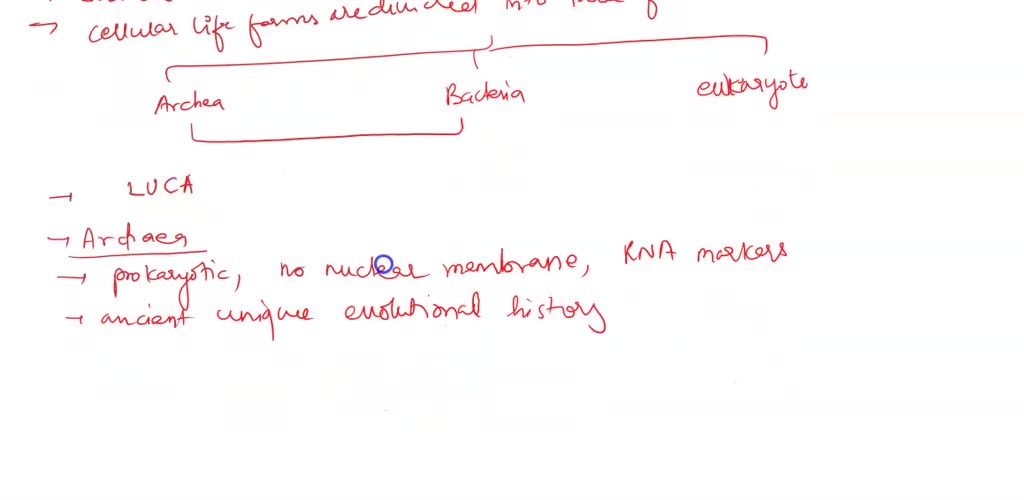 → cellular life forms are divided into
Archea Bacteria eukaryote
→ LUCA
→ Archaea
→ prokaryotic, no nuclear membrane, RNA markers
→ ancient unique evolutional history